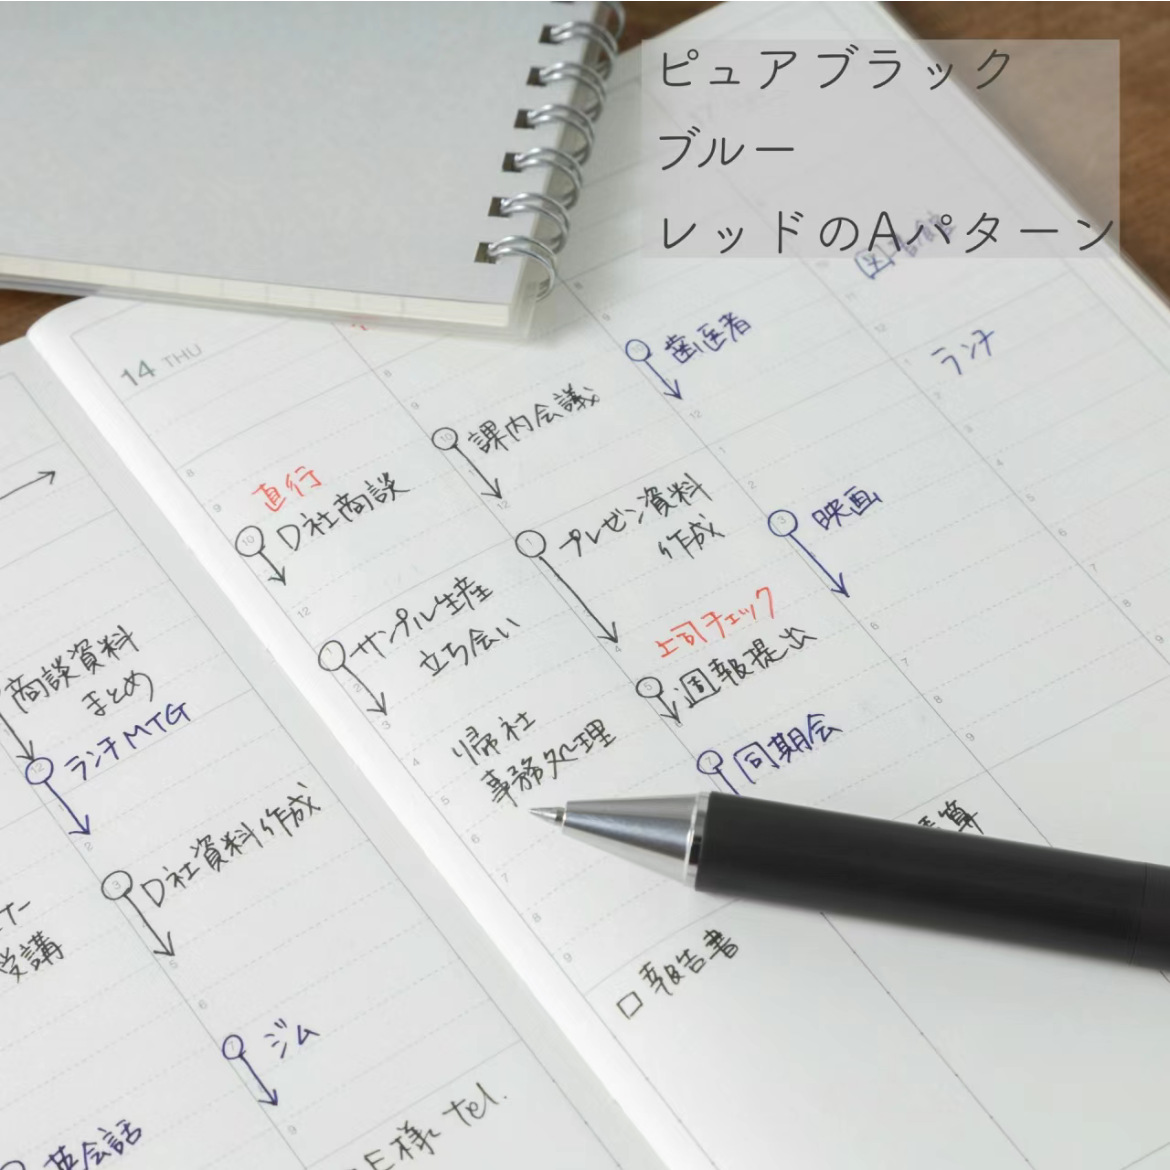 ピュアブラック
ブルー
レッドのAパターン
14 THU
直行
D社商談
サンプル生産
立ち会い
帰社
事務処理
課内会議
プレゼン資料
作成
上司チェック
週報提出
同期会
歯医者
映画
図書館
ランチ
商談資料
まとめ
ランチMTG
D社資料作成
受講
ジム
英会話
E様 tel.
□ 報告書
算